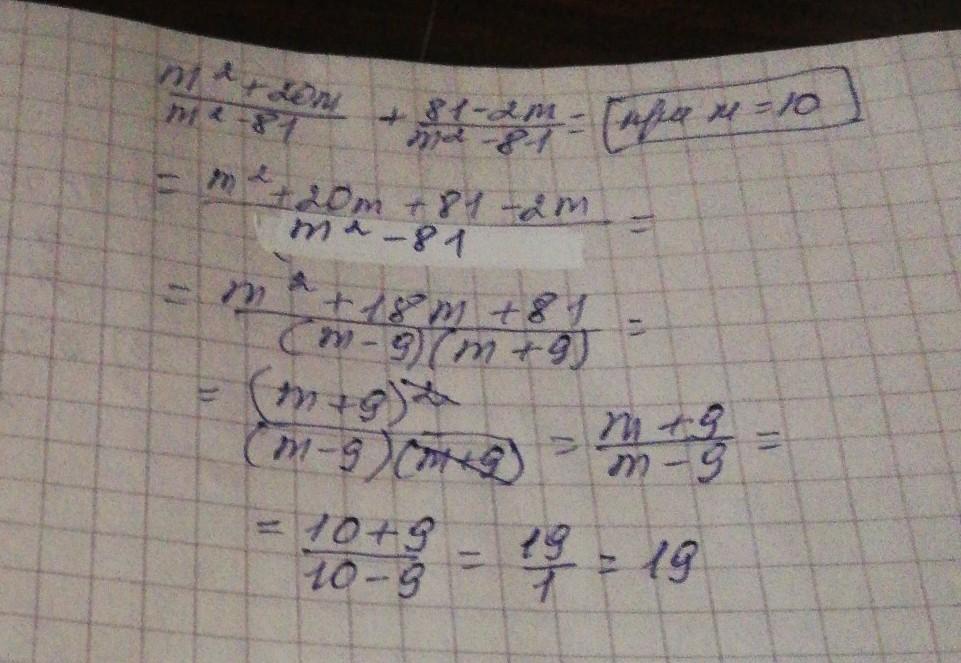 m² + 20m / m² - 81 + 81 - 2m / m² - 81 = при м = 10
= m² + 20m + 81 - 2m / m² - 81 =
= m² + 18m + 81 / (m - 9)(m + 9) =
= (m + 9)² / (m - 9)(m + 9) = m + 9 / m - 9 =
= 10 + 9 / 10 - 9 = 19 / 1 = 19